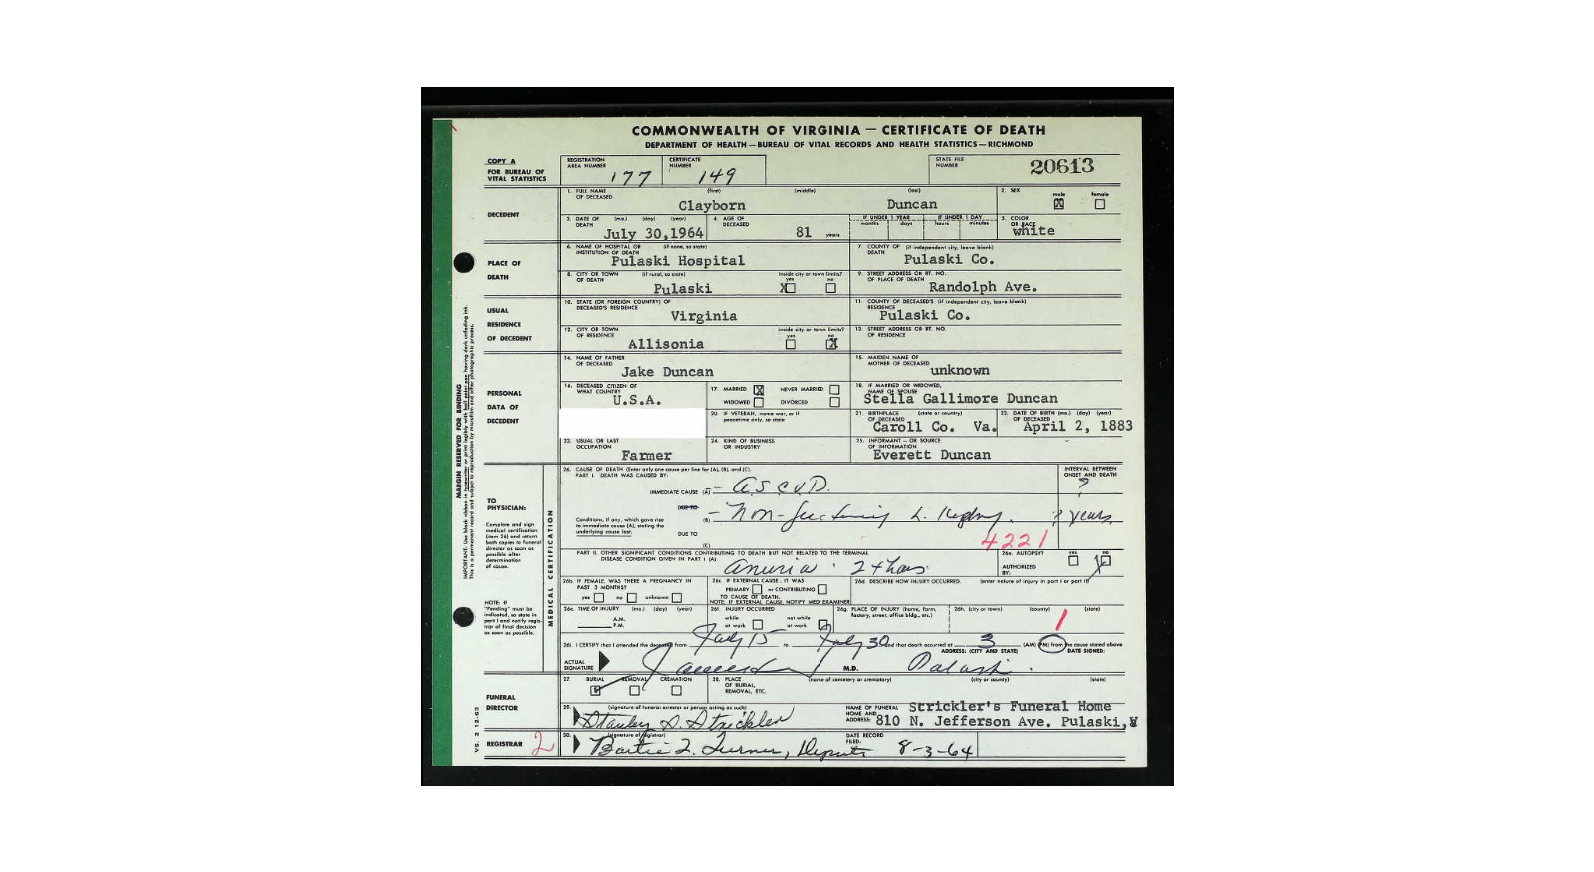 COMMONWEALTH OF VIRGINIA — CERTIFICATE OF DEATH
DEPARTMENT OF HEALTH—BUREAU OF VITAL RECORDS AND HEALTH STATISTICS—RICHMOND
COPY A
FOR BUREAU OF
VITAL STATISTICS
REGISTRATION AREA NUMBER 177
CERTIFICATE NUMBER 149
STATE FILE NUMBER 20613
DECEDENT
1. FULL NAME OF DECEASED (first) (middle) (last)
Clayborn Duncan
2. SEX male female
3. DATE OF DEATH (mo.) (day) (year)
July 30,1964
4. AGE OF DECEASED
81 years
IF UNDER 1 YEAR months days
IF UNDER 1 DAY hours minutes
5. COLOR OR RACE
white
PLACE OF DEATH
6. NAME OF HOSPITAL OR INSTITUTION OF DEATH (if none, so state)
Pulaski Hospital
7. COUNTY OF DEATH (if independent city, leave blank)
Pulaski Co.
8. CITY OR TOWN OF DEATH (if rural, so state)
Pulaski
inside city or town limits? yes no
9. STREET ADDRESS OR RT. NO. OF PLACE OF DEATH
Randolph Ave.
USUAL RESIDENCE OF DECEDENT
10. STATE (OR FOREIGN COUNTRY) OF DECEASED'S RESIDENCE
Virginia
11. COUNTY OF DECEASED'S RESIDENCE (if independent city, leave blank)
Pulaski Co.
12. CITY OR TOWN OF RESIDENCE
Allisonia
inside city or town limits? yes no
13. STREET ADDRESS OR RT. NO. OF RESIDENCE
PERSONAL DATA OF DECEDENT
14. NAME OF FATHER OF DECEASED
Jake Duncan
15. MAIDEN NAME OF MOTHER OF DECEASED
unknown
16. DECEASED CITIZEN OF WHAT COUNTRY
U.S.A.
17. MARRIED NEVER MARRIED
WIDOWED DIVORCED
18. IF MARRIED OR WIDOWED, NAME OF SPOUSE
Stella Gallimore Duncan
20. IF VETERAN, name war, or if peacetime only, so state
21. BIRTHPLACE OF DECEASED (state or country)
Caroll Co. Va.
22. DATE OF BIRTH OF DECEASED (mo.) (day) (year)
April 2, 1883
23. USUAL OR LAST OCCUPATION
Farmer
24. KIND OF BUSINESS OR INDUSTRY
25. INFORMANT — OR SOURCE OF INFORMATION
Everett Duncan
MARGIN RESERVED FOR BINDING
MEDICAL CERTIFICATION
TO PHYSICIAN:
Complete and sign
medical certification
(item 26) and return
both copies to funeral
director as soon as
possible after
determination
of cause.
NOTE: IF
"Pending" must be
indicated, so state in
part I and notify registrar
of final decision
as soon as possible.
26. CAUSE OF DEATH (Enter only one cause per line for (A), (B), and (C).
PART I. DEATH WAS CAUSED BY:
INTERVAL BETWEEN ONSET AND DEATH
IMMEDIATE CAUSE (A) - A.S.C.V.D. ?
DUE TO
Conditions, if any, which gave rise to immediate cause (A), stating the underlying cause last.
(B) - Non-functioning L. Kidney. ? years
DUE TO
(C)
4221
PART II. OTHER SIGNIFICANT CONDITIONS CONTRIBUTING TO DEATH BUT NOT RELATED TO THE TERMINAL DISEASE CONDITION GIVEN IN PART I (A)
Anuria
26a. AUTOPSY? yes no
AUTHORIZED BY:
26b. IF FEMALE, WAS THERE A PREGNANCY IN PAST 3 MONTHS?
yes no unknown
26c. IF EXTERNAL CAUSE, IT WAS
PRIMARY or CONTRIBUTING
TO CAUSE OF DEATH.
NOTE: IF EXTERNAL CAUSE, NOTIFY MED EXAMINER
26d. DESCRIBE HOW INJURY OCCURRED. (enter nature of injury in part I or part II)
26e. TIME OF INJURY (mo.) (day) (year)
A.M.
P.M.
26f. INJURY OCCURRED
while at work not while at work
26g. PLACE OF INJURY (home, farm, factory, street, office bldg., etc.)
26h. (city or town) (county) (state)
26i. I CERTIFY that I attended the deceased from July 15 to July 30 and that death occurred at 3 (AM) (PM) from the cause stated above
ACTUAL SIGNATURE M.D.
ADDRESS: (CITY AND STATE) DATE SIGNED:
Pulaski
FUNERAL DIRECTOR
27. BURIAL REMOVAL CREMATION
28. PLACE OF BURIAL, REMOVAL, ETC. (name of cemetery or crematory) (city or county) (state)
29. (signature of funeral director or person acting as such)
Stanley A. Strickler
NAME OF FUNERAL HOME AND ADDRESS:
Strickler's Funeral Home
810 N. Jefferson Ave. Pulaski,
REGISTRAR
2
30. (signature of registrar)
Bertie L. Turner, Deputy
DATE RECORD FILED:
8-3-64